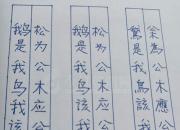 枩為公木應公
鵞是我鳥該我
松为公木应公
鹅是我鸟该我
松为公木应公
鹅是我鸟该我